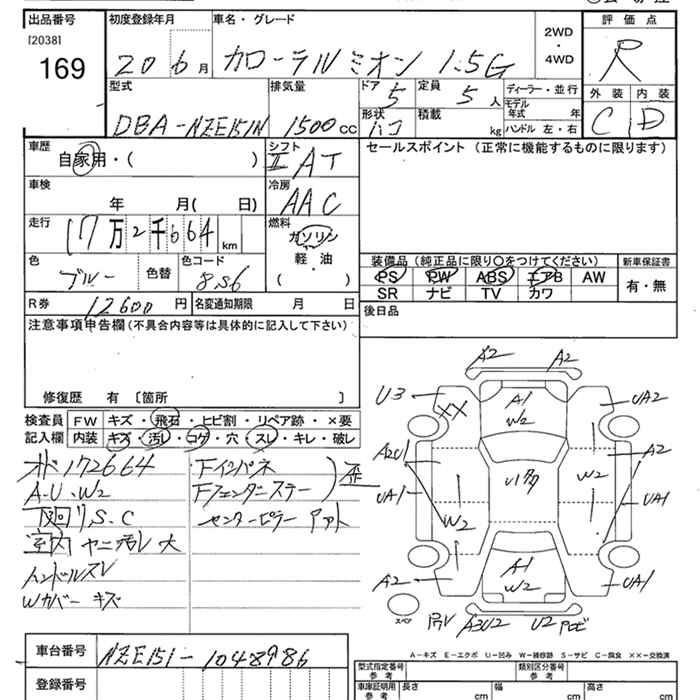 出品番号 初度登録年月 車名・グレード 2WD・4WD 評価点
[2038]
169 20 6月 カローラルミオン 1.5G R
型式 排気量 ドア 定員 ディーラー・並行 外装 内装
5 5人 モデル年式 年
DBA-NZE151N 1500cc 形状 積載 kg ハンドル 左・右 C D
車歴 シフト セールスポイント(正常に機能するものに限ります)
自家用・( ) AT
車検 冷房
年 月( 日) AAC
走行 燃料
17万2千664km ガソリン
軽・油
( )
色 色替 色コード 装備品(純正品に限り○をつけてください) 新車保証書
ブルー 8S6 PS PW ABS エアB AW 有・無
SR ナビ TV カワ
R券 12600円 名変通知期限 月 日 後日品
注意事項申告欄(不具合内容等は具体的に記入して下さい)
修復歴 有〔箇所 〕
検査員記入欄 FW キズ・飛石・ヒビ割・リペア跡・×要
内装 キズ・汚レ・コゲ・穴・スレ・キレ・破レ
172664 Fインパネ
A・U・W2 Fフェンダーステー 歪
下廻りS.C センターピラー アト
室内ヤニ汚レ大
ハンドルスレ
Wカバーキズ
A2 A2
U3 XX A1 W2 UA2
A2U1 A2
UA1 W2 W2 UA1
A1 W2
A2 UA1
スペア A3U2 U2
A-キズ E-エクボ U-凹み W-補修跡 S-サビ C-腐食 XX-交換済
車台番号 NZE151-1048986
登録番号
型式指定番号 参考 類別区分番号 参考
車庫証明用 参考 長さ cm 幅 cm 高さ cm